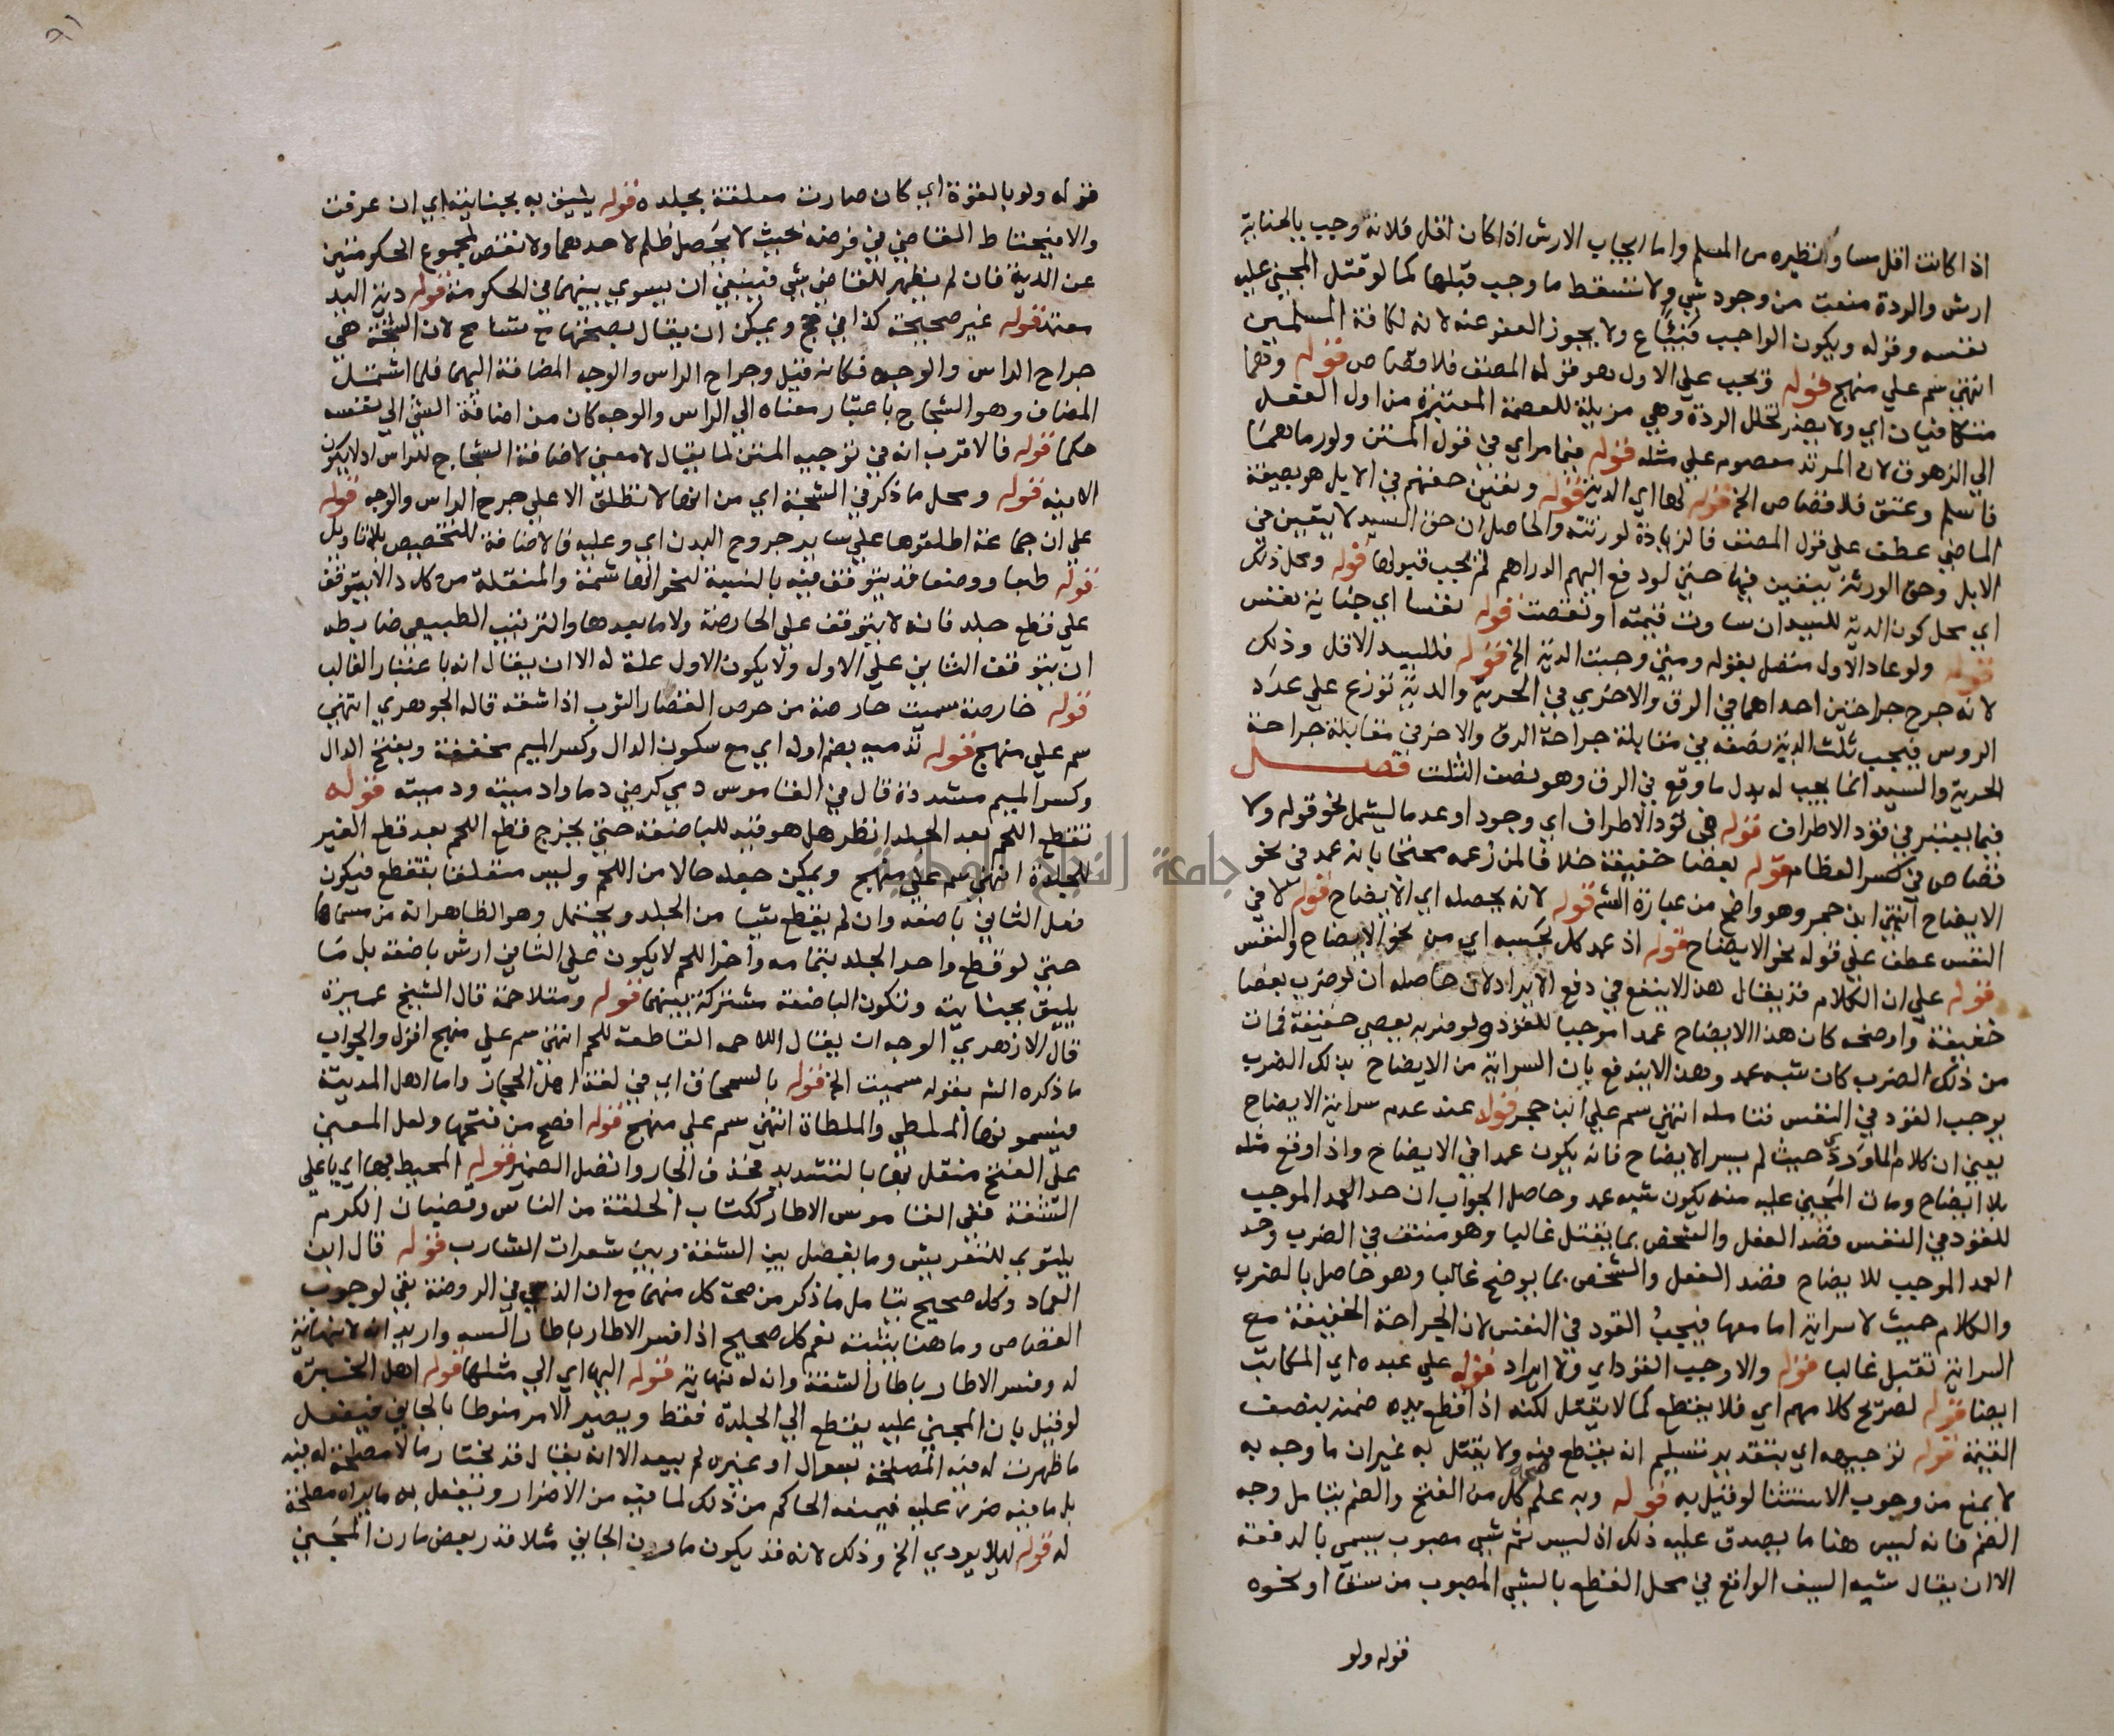 اذا كانت اقل مساو نظيره من المسلم واما ايجاب الارش اذا كان اقل فلانه وجب بالجناية
ارش والردة منعت من وجود شي ولا تسقط ما وجب قبلها كما لو قتل المجني عليه
نفسه وقوله ويكون الواجب فيئا ع ولا يجوز العفو عنه لانه لكافة المسلمين
انتهي سم علي منهج قوله فيجب علي الاول هو قول المصنف فلا قصاص قوله وهما
متكافيان اي ولا يضر تخلل الردة وهي مزيلة للعصمة المعتبرة من اول الفعل
الي الزهوق لان المرتد معصوم علي مثله قوله فيما مر اي في قول المتن ولو رماهما
فاسلم وعتق فلا قصاص الخ قوله لها اي الدية قوله وتعين حقهم في الابل هو بصيغة
الماضي عطف علي قول المصنف فالزيادة لورثته والحاصل ان حق السيد لا يتعين في
الابل وحق الورثة يتعين فيها حتي لو دفع اليهم الدراهم لم يجب قبولها قوله ومحل ذلك
اي محل كون الدية للسيد ان ساوت قيمته او نقصت قوله نفسا اي جناية نفس
قوله ولو عاد الاول متصل بقوله ومتي وجبت الدية الخ قوله فللسيد الاقل وذلك
لانه جرح جراحتين احداهما في الرق والاخري في الحرية والدية توزع علي عدد
الروس فيجب ثلث الدية نصفه في مقابلة جراحة الرق والاخر في مقابلة جراحة
الحرية والسيد انما يجب له بدل ما وقع في الرق وهو نصف الثلث فصل
فيما يعتبر في قود الاطراف قوله في قود الاطراف اي وجود او عدما ليشمل نحو قوله ولا
قصاص في كسر العظام قوله بعضا خفيفة خلافا لمن زعمه محتجا بانه عمد في نحو
الايضاح انتهي ابن حجر وهو واضح من عبارة الشه قوله لانه يحصله اي الايضاح قوله لا في
النفس عطف علي قوله نحو الايضاح قوله اذ عمد كل بحسبه اي من نحو الايضاح والنفس
قوله علي ان الكلام قد يقال هذا لا ينفع في دفع الايراد لان حاصله ان لو ضرب بعضا
خفيفة واوضحه كان هذا الايضاح عمدا موجبا للقود ولو ضربه بعصي خفيفة فمات
من ذلك الضرب كان شبه عمد وهذا لا يندفع بان السراية من الايضاح بذلك الضرب
يوجب القود في النفس فتامله انتهي سم علي ابن حجر قوله عند عدم سراية الايضاح
يعني ان كلام الماوردي حيث لم يسر الايضاح فانه يكون عمدا في الايضاح واذا وقع مثله
بلا ايضاح ومات المجني عليه منه يكون شبه عمد وحاصل الجواب ان حد العمد الموجب
للقود في النفس قصد الفعل والشخص بما يقتل غالبا وهو منتف في الضرب وحد
العمد الموجب للايضاح قصد الفعل والشخص بما يوضح غالبا وهو حاصل بالضرب
والكلام حيث لا سراية اما معها فيجب القود في النفس لان الجراحة الخفيفة مع
السراية تقتل غالبا قوله والا وجب القود اي ولا ايراد قوله علي عبده اي المكاتب
ايضا قوله لصريح كلامهم اي فلا يقطع كما لا يقتل لكنه اذا قطع يده ضمنه بنصف
القيمة قوله توجيهه اي بتقدير تسليم انه يقطع فيه ولا يقتل به غير ان ما وجه به
لا يمنع من وجوب الاستثنا لو قيل به قوله وبه علم صحة كل من الفتح والضم بتامل وجه
الضم فانه ليس هنا ما يصدق عليه ذلك اذ ليس ثم شي مصبوب يسمي بالدفعة
الا ان يقال شبه السيف الواقع في محل القطع بالشي المصبوب من سقا او نحوه
قوله ولو
قوله ولو بالقوة اي كان صارت معلقة بجلده قوله يليق به بجنايته اي ان عرفت
والا فيجتاط القاضي في فرضه بحيث لا يحصل ظلم لاحدهما ولا تنقص لمجموع الحكومتين
عن الدية فان لم يظهر للقاضي شي فينبغي ان يسوي بينهما في الحكومة قوله دية اليد
معتمد قوله غير صحيحة كذا في حج ويمكن ان يقال بصحتها مع تسامح لان الشجة هي
جراح الراس والوجه فكانه قيل وجراح الراس والوجه المضافة اليهما فلما اشتملت
المضاف وهو الشجاج باعتبار معناه الي الراس والوجه كان من اضافة الشي الي نفسه
حكما قوله فالاقرب انه في توجيه المتن لما يقال لا معني لاضافة الشجاج للراس اذ لا يكون
الا فيه قوله ومحل ما ذكر في الشجة اي من انها لا تطلق الا علي جرح الراس والوجه قوله
علي ان جماعة اطلقوها علي ساير جروح البدن اي وعليه فالاضافة للتخصيص بلا تاويل
قوله طبعا ووضعا قد يتوقف فيه بالنسبة لنحو الهاشمة والمنقلة من كل د الا يتوقف
علي قطع جلد فانه لا يتوقف علي الحارصة ولا ما بعدها والترتيب الطبيعي ضابطه
ان يتوقف الثاني علي الاول ولا يكون الاول علة له الا ان يقال انه باعتبار الغالب
قوله حارصة سميت حارصة من حرص القصار الثوب اذا شقه قاله الجوهري انتهي
سم علي منهج قوله تدميه بضم اوله اي مع سكون الدال وكسر الميم مخففة وبفتح الدال
وكسر الميم مشددة قال في القاموس دمي كرضي دما وادميته ودميته قوله
تقطع اللحم بعد الجلد انظر هل هو قيد للباضعة حتي يخرج قطع اللحم بعد قطع الغير
للجلدة انتهي سم علي منهج ويمكن جعله حالا من اللحم وليس متعلقا بتقطع فيكون
فعل الثاني باضعه وان لم يقطع شيا من الجلد ويحتمل وهو الظاهر انه من مسماها
حتي لو قطع واحد الجلد بتمامه واخر اللحم لا يكون علي الثاني ارش باضعة بل ما
يليق بجنايته وتكون الباضعة مشتركة بينهما قوله ومتلاحمة قال الشيخ عميرة
قال الازهري الوجه ان يقال اللاحمه القاطعة للحم انتهي سم علي منهج اقول والجواب
ما ذكره الشه بقوله سميت الخ قوله بالسمحاق اي في لغة اهل الحجاز واما اهل المدينة
فيسمونها الملطي والملطاة انتهي سم علي منهج قوله افصح من فتحها ولعل المعني
علي الفتح منقل بها بالتشديد فحذف الجار واتصل الضمير قوله المحيط بها اي باعلي
الشفة ففي القاموس الاطار ككتاب الحلقة من الناس وقضبان الكرم
يلتوي للتعريش وما يفصل بين الشفة وبين شعرات الشارب قوله قال ابن
العماد وكل صحيح بتامل ما ذكر من صحة كل منهما مع ان الذي في الروضة نفي لوجوب
القصاص وما هنا يثبته نعم كل صحيح اذا فسر الاطار باطار السه واريد انه لا نهاية
له وفسر الاطار باطار الشفة وانه له نهاية قوله اليها اي الي مثلها قوله اهل الخبرة
لو قيل بان المجني عليه يقطع الي الجلدة فقط ويصير الامر منوطا بالجاني فيفعل
ما ظهرت له فيه المصلحة بسوال او غيره لم يبعد الا ان يقال قد يختار ما لا مصلحة له فيه
بل ما فيه ضرر عليه فيمنعه الحاكم من ذلك لما فيه من الاضرار ويفعل به ما يراه مصلحة
له قوله ليلا يودي الخ وذلك لانه قد يكون مارن الجاني مثلا قدر بعض مارن المجني